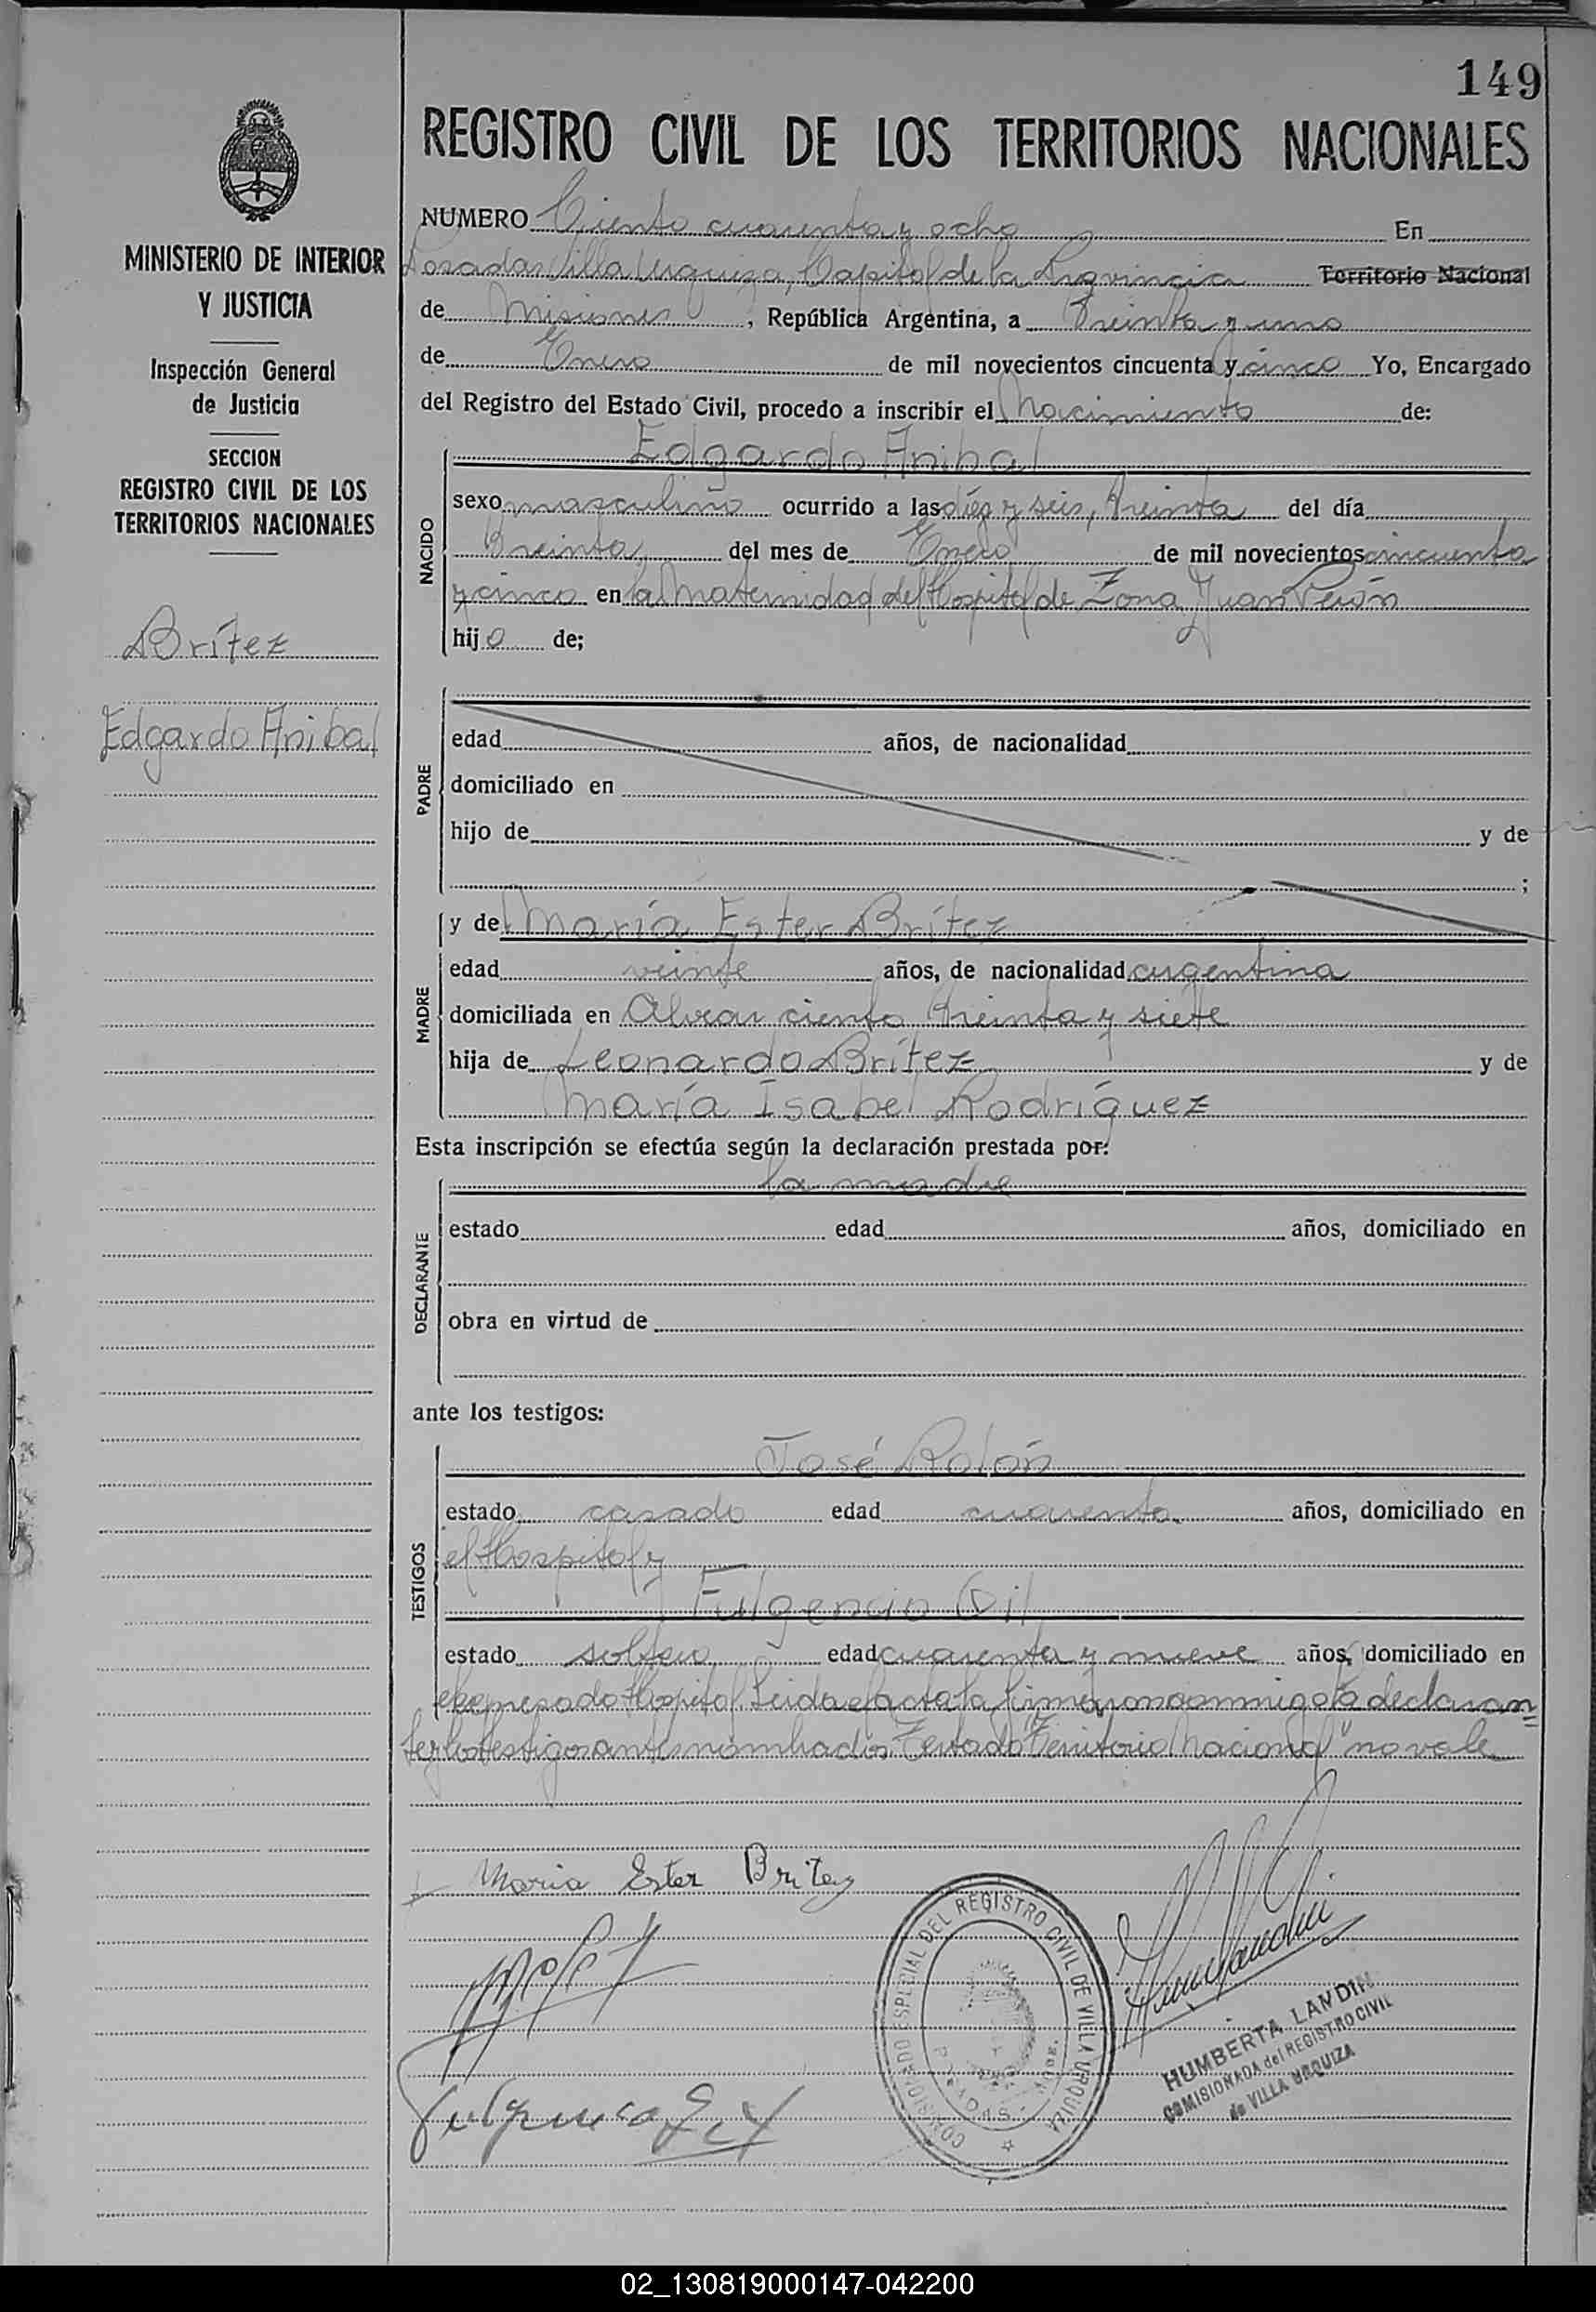 149
REGISTRO CIVIL DE LOS TERRITORIOS NACIONALES
MINISTERIO DE INTERIOR
Y JUSTICIA
Inspección General
de Justicia
SECCION
REGISTRO CIVIL DE LOS
TERRITORIOS NACIONALES
Brítez
Edgardo Anibal
NUMERO Ciento cuarenta y ocho En
Posadas Villa Urquiza, Capital de la Provincia Territorio Nacional
de Misiones, República Argentina, a Treinta y uno
de Enero de mil novecientos cincuenta y cinco Yo, Encargado
del Registro del Estado Civil, procedo a inscribir el Nacimiento de:
NACIDO
Edgardo Anibal
sexo masculino ocurrido a las diez y seis, treinta del día
Treinta del mes de Enero de mil novecientos cincuenta
y cinco en la Maternidad del Hospital de Zona Juan Perón
hijo de;
PADRE
edad años, de nacionalidad
domiciliado en
hijo de y de
;
MADRE
y de María Ester Brítez
edad veinte años, de nacionalidad argentina
domiciliada en Alvear ciento treinta y siete
hija de Leonardo Brítez y de
María Isabel Rodríguez
Esta inscripción se efectúa según la declaración prestada por:
DECLARANTE
la madre
estado edad años, domiciliado en
obra en virtud de
ante los testigos:
TESTIGOS
José Rolón
estado casado edad cuarenta años, domiciliado en
el Hospital y
Fulgencio Gil
estado soltero edad cuarenta y nueve años, domiciliado en
el expresado Hospital. Leida el acta la firmaron conmigo la declaran=
te y los testigos antes nombrados. Testado "Territorio Nacional" no vale
Maria Ester Britez
COMISIONADO ESPECIAL DEL REGISTRO CIVIL DE VILLA URQUIZA
POSADAS
HUMBERTA LANDIN
COMISIONADA del REGISTRO CIVIL
de VILLA URQUIZA
02_130819000147-042200